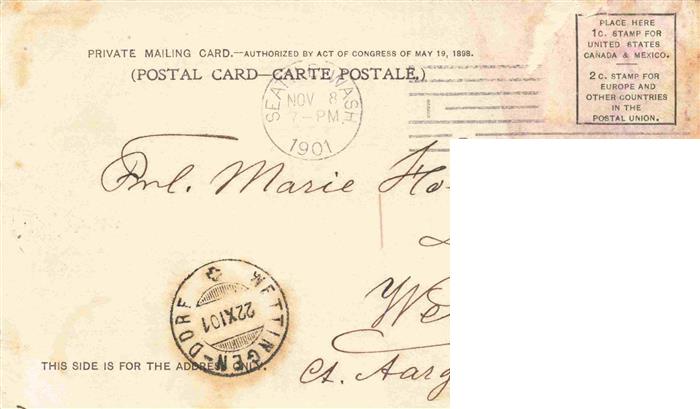 PRIVATE MAILING CARD.—AUTHORIZED BY ACT OF CONGRESS OF MAY 19, 1898.
(POSTAL CARD—CARTE POSTALE.)
PLACE HERE
1c. STAMP FOR
UNITED STATES
CANADA & MEXICO.
2c. STAMP FOR
EUROPE AND
OTHER COUNTRIES
IN THE
POSTAL UNION.
WASH.
NOV 8
7-PM
1901
Marie
WETTINGEN-DORF
22XI01
Ct.
THIS SIDE IS FOR THE ADDRESS ONLY.